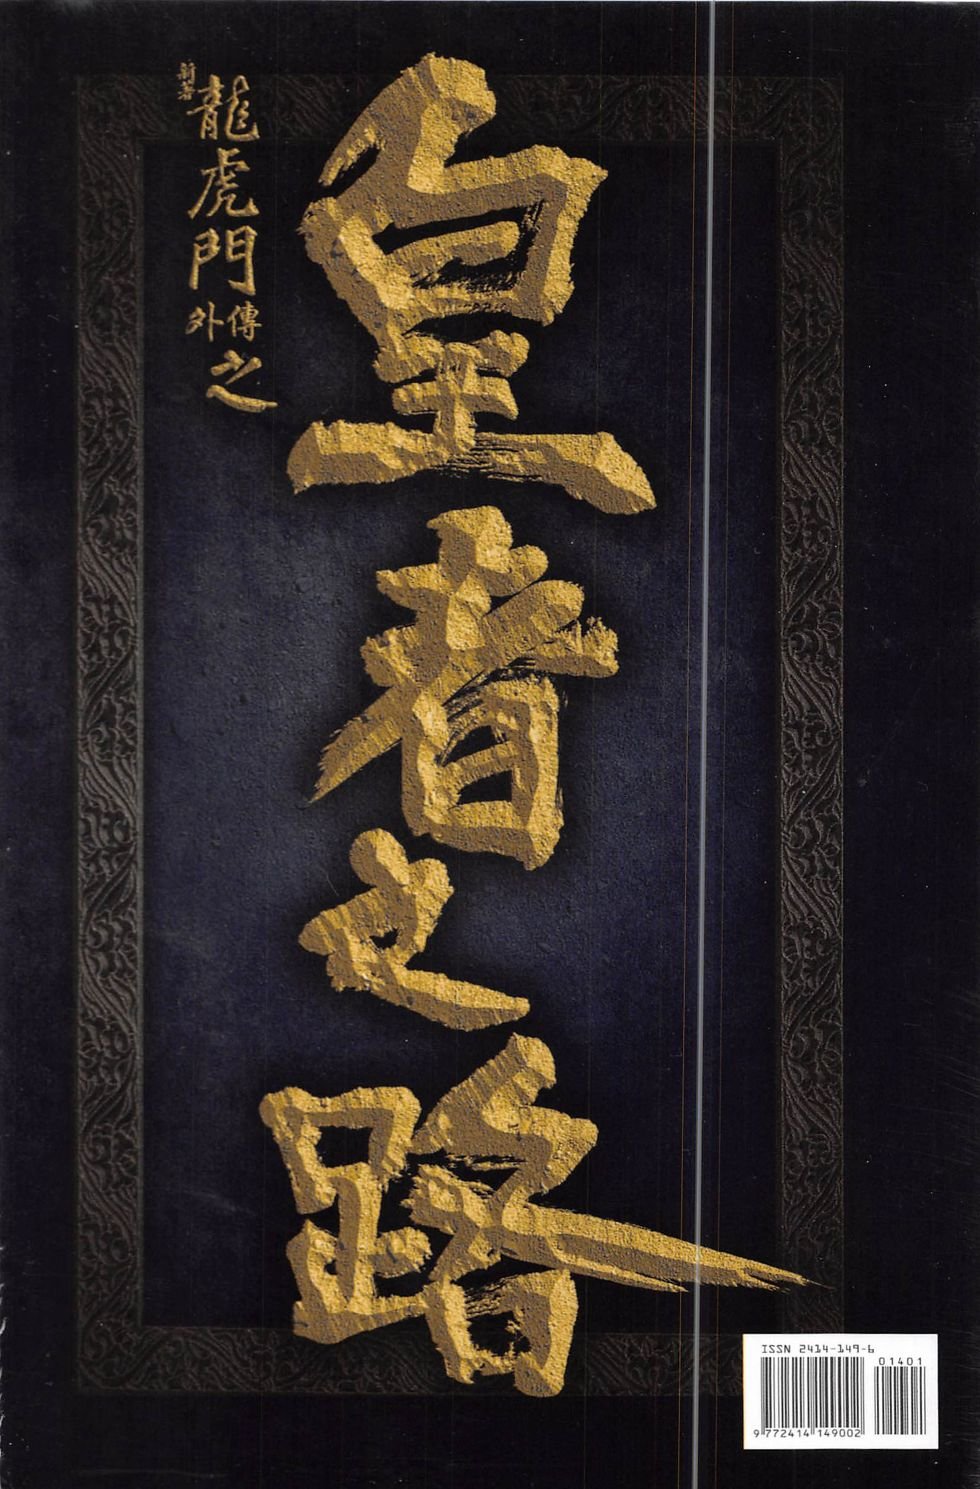 新著
龍虎門
外傳
之
皇者之路
ISSN 2414-149-6
01401
9 772414 149002